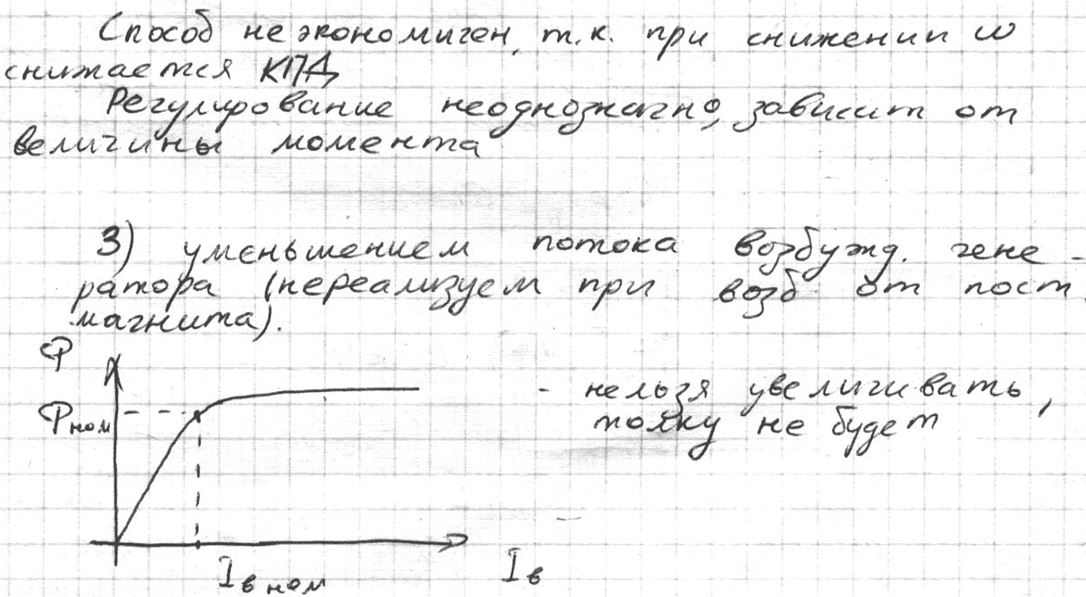 Способ не экономичен, т.к. при снижении ω
снижается КПД
Регулирование неоднозначно, зависит от
величины момента
3) уменьшением потока возбужд. гене-
ратора (нереализуем при возб. от пост.
магнита).
Φ
Φном
- нельзя увеличивать,
толку не будет
Iв ном
Iв